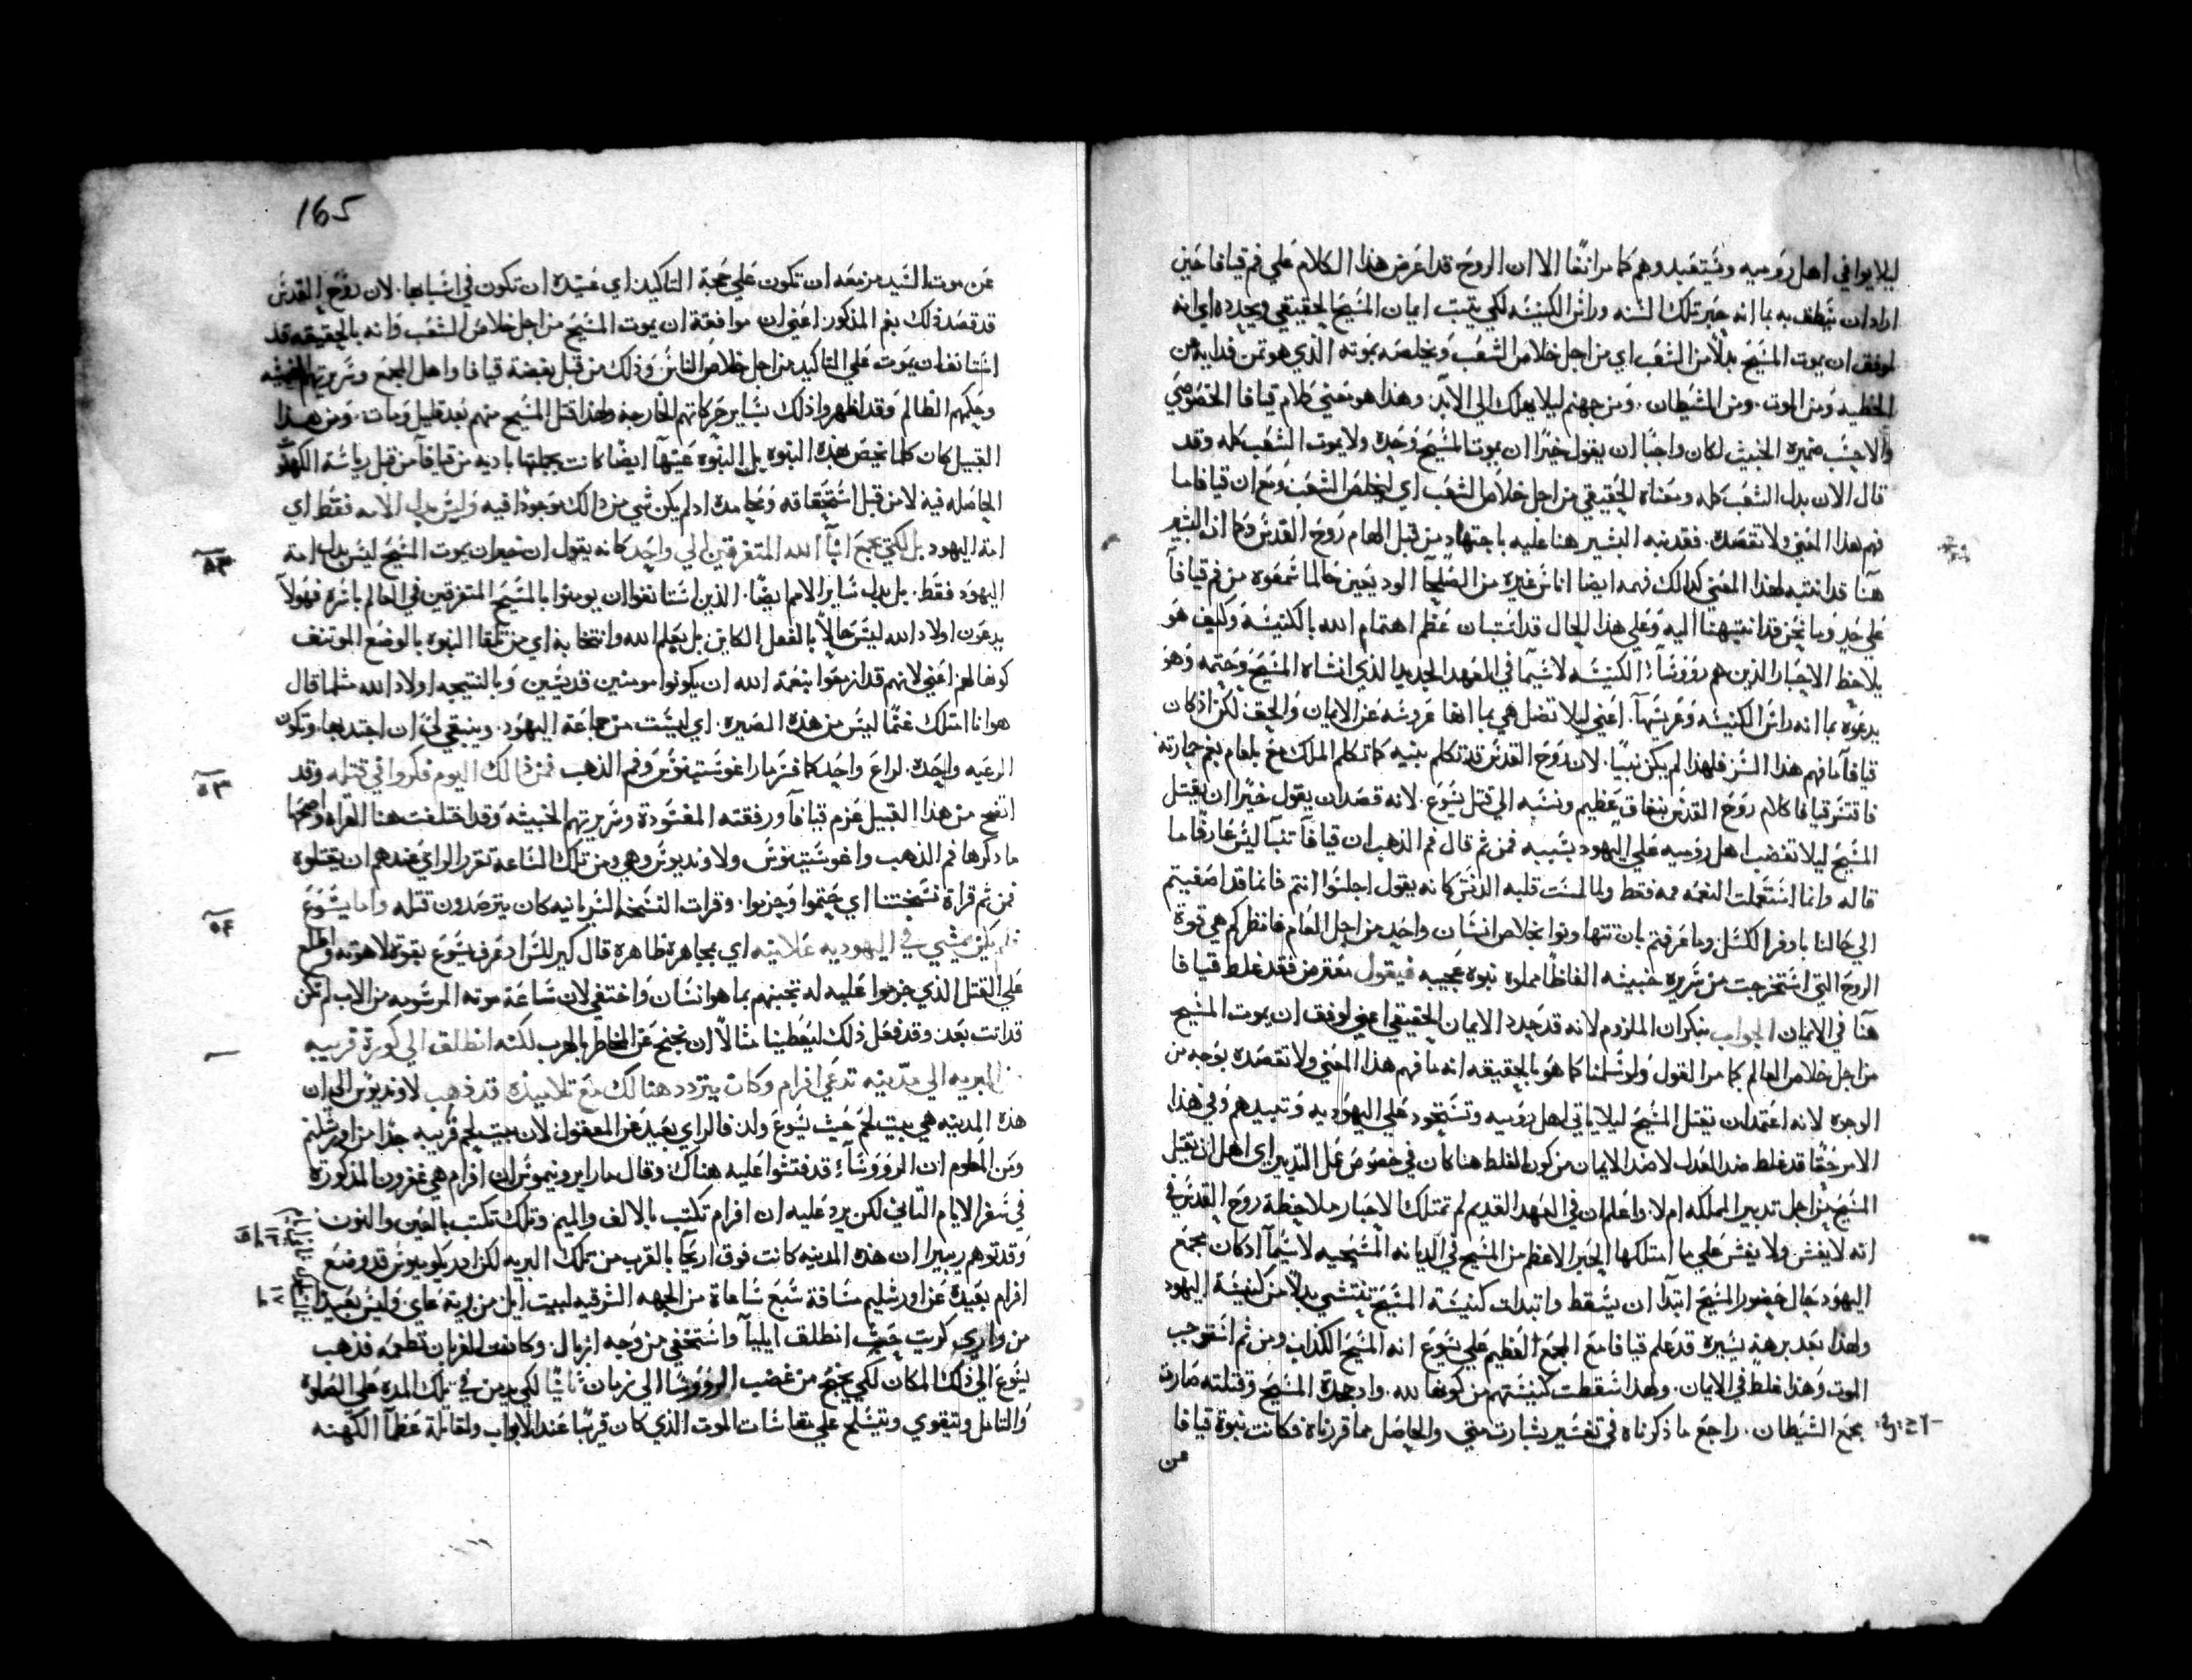 ليلا يوافي اهل روميه وتستعبدوهم كما مر انفًا الا ان الروح قد اعرض هذا الكلام علي فم قيافا حين
اراد ان ينطق به بما انه حبر تلك السنه وراس الكنيسه لكي يثبت ايمان المسيح الحقيقي ويجدده اي انه
لوفق ان يموت المسيح بدلاً من الشعب اي من اجل خلاص الشعب ويخلصه بموته الذي هو ثمن فدايه من
الخطيه ومن الموت. ومن الشيطان. ومن جهنم ليلا يهلك الي الابد. وهذا هو معني كلام قيافا الخصوصي
والا حسب ضميره الخبيث لكان واجبًا ان يقول خيرًا ان يموت المسيح وحده ولا يموت الشعب كله وقد
قال الان بدل الشعب كله ومعناه الحقيقي من اجل خلاص الشعب اي ليخلص الشعب ومع ان قيافا ما
فهم هذا المعني ولا تقصده. فقد نبه البشير هنا عليه باجتهاد من قبل الهام روح القدس وكما ان البشير
هنا قد انتبه لهذا المعني كذلك فهمه ايضا اناس غيره من الصلحا الوديعين حالما سمعوه من فم قيافا
علي حد وما نحن قد انتبهنا اليه وعلي هذا الحال قد استبان عظم اهتمام الله بالكنيسه وكيف هو
يلاحظ الاحبار الذين هم روُوسآء الكنيسه لا سيما في العهد الجديد الذي انشاه المسيح وختمه وهو
يدعوه بما انه راس الكنيسه وعريسها. اعني ليلا تضل هي بما انها عروسه عن الايمان والحق لكن اذ كان
قيافا ما فهم هذا السر فلهذا لم يكن نبيًا. لان روح القدس قد تكلم بفيه كما تكلم الملاك مع بلعام بفم حمارته
فاقتسر قيافا كلام روح القدس بنفاق عظيم ونسبه الي قتل يسوع. لانه قصد ان يقول خيرًا ان يقتل
المسيح ليلا تغضب اهل روميه علي اليهود بسببه فمن ثم قال فم الذهب ان قيافا تنبا ليس عارفًا ما
قاله وانما استعملت النعمه فمه فقط ولما لمست قلبه الدنس كانه يقول اجلسوا انتم فانما قد اصغيتم
الي حالنا باوفر الكسل وما عرفتم بان تتهاونوا بخلاص انسان واحد من اجل العام فانظر كم هي قوة
الروح التي استخرجت من سريره خبيثه الفاظًا مملوه نبوه عجيبه فيقول معترض فقد غلط قيافا
هنا في الايمان الجواب بنكران الملزوم لانه قد حدد الايمان الحقيقي اعني لوفق ان يموت المسيح
من اجل خلاص العالم كما مر القول ولو سلمنا كما هو بالحقيقه انه ما فهم هذا المعني ولا تقصده بوجه من
الوجوه لانه اعتمد ان يقتل المسيح ليلا ياتي اهل روميه وتستحوذ علي اليهوديه وتبيدهم وفي هذا
الامر حقًا قد غلط ضد العدل لا ضد الايمان من كون الغلط هنا كان في خصوص عمل التدبير اي اهل ان يقتل
المسيح من اجل تدبير المملكه ام لا. واعلم ان في العهد القديم لم تمتلك الاحبار ملاحظة روح القدس في
انه لا يغش ولا يغش علي ما امتلكها الحبر الاعظم من المسيح في الديانه المسيحيه لا سيما اذ كان مجمع
اليهود حال حضور المسيح ابتدا ان يسقط وابتدات كنيسة المسيح تنتشي بدلاً من كنيسة اليهود
ولهذا بعد برهه يسيره قد علم قيافا مع المجمع العظيم علي يسوع انه المسيح الكذاب ومن ثم استوجب
الموت وهذا غلط في الايمان. ولهذا سقطت كنيستهم من كونها لله. واذ جحدة المسيح وقتلته صارت
مجمع الشيطان. راجع ما ذكرناه في تفسير بشارة متي. والحاصل مما قررناه فكانت نبوة قيافا
عن
165
عن موت السيد مزمعه ان تكون علي محبة التاكيد اي عتيده ان تكون في اشباهها. لان روح القدس
قد قصد ذلك بفم المذكور اعني ان موافقة ان يموت المسيح من اجل خلاص الشعب وانه بالحقيقه قد
استانف ان يموت علي التاكيد من اجل خلاص الناس وذلك من قبل بغضة قيافا واهل المجمع وسريرتهم الخبيثه
وحكمهم الظالم وقد اظهروا ذلك بساير حركاتهم الخارجه ولهذا قتل المسيح منهم بعد قليل ومات. ومن هذا
القبيل كان كلما يخص هذه النبوه بل النبوه عينها ايضا كانت بجملتها باديه من قيافا من قبل رياسة الكهنوت
الحاصله فيه لا من قبل استحقاقه ومحامده اذ لم يكن شي من ذلك موجودًا فيه وليس بدل الامه فقط اي
امة اليهود بل لكي يجمع ابنآ الله المتفرقين الي واحد كانه يقول ان خيران يموت المسيح ليس بدل امة
اليهود فقط. بل بدل ساير الامم ايضًا. الذين استانفوا ان يومنوا بالمسيح المتفرقين في العالم باسره فهولآ
يدعون اولاد الله ليس حالاً بالفعل الكاين بل بعلم الله وانتخابه اي من تلقا النبوه بالوضع الموتنف
كونها لهم اعني لانهم قد ازمعوا بنعمة الله ان يكونوا مومنين قديسين وبالنتيجه اولاد الله مثلما قال
هو انا امتلك غنمًا ليس من هذه الصيره. اي ليست من جماعة اليهود. وينبغي لي ان اجتذبها. وتكون
الرعيه واحده. لراع واحد كما فسر مار اغوستينوس وفم الذهب فمن ذلك اليوم فكروا في قتله وقد
اتضح من هذا القبيل عزم قيافا ورفقته المفسودة وسريرتهم الخبيثه وقد اختلفت هنا القراه واصحها
ما ذكرها فم الذهب واغوستينوس ولاونديوس وهي ومن تلك الساعة تقرر الراي عندهم ان يقتلوه
فمن ثم قراة نسختنا اي حتموا وجزموا. وقرات النسخه السريانيه كان يترصدون قتله واما يسوع
فلم يكن يمشي في اليهوديه علانيه اي بمجاهره ظاهرة قال كيرللس اذ عرف يسوع بقوة لاهوته واطلع
علي القتل الذي جزموا عليه له تجنبهم بما هو انسان واختفي لان ساعة موته المرسومه من الاب لم تكن
قد اتت بعد وقد فعل ذلك ليعطينا مثالاً ان نجنح عن المخاطر بالهرب لكنه انطلق الي كورة قريبه
من البريه الي مدينه تدعي افرام وكان يتردد هنالك مع تلاميذه قد ذهب لاونديوس الي ان
هذه المدينه هي بيت لحم حيث يسوع ولد فالراي بعيد عن المعقول لان بيت لحم قريبه جدًا من اورشليم
ومن المعلوم ان الروُوسآء قد فتشوا عليه هناك وقال مار ايرونيموس ان افرام هي عفرون المذكورة
في سفر الايام الثاني لكن يرد عليه ان افرام تكتب بالالف والميم وتلك تكتب بالعين والنون
وقد توهم ريبيرا ان هذه المدينه كانت فوق اريحا بالقرب من تلك البريه لكن ادريكوميوس قد وضع
افرام بعيدة عن اورشليم مسافة سبع ساعاة من الجهه الشرقيه لبيت ايل من قرية عاي وليس بعيدًا
من وادي كريت حيث انطلق ايليآ واستخفي من وجه ازبال. وكانت الغربان تطعمه فذهب
يسوع الي ذلك المكان لكي ينجح من غضب الروُوسا الي زمان ثانيًا لكي يدمن في تلك المده علي الصلوة
والتامل ويتقوي ويتسلح علي مقاساة الموت الذي كان قريبًا عند الابواب ولمقابلة عظمآ الكهنه